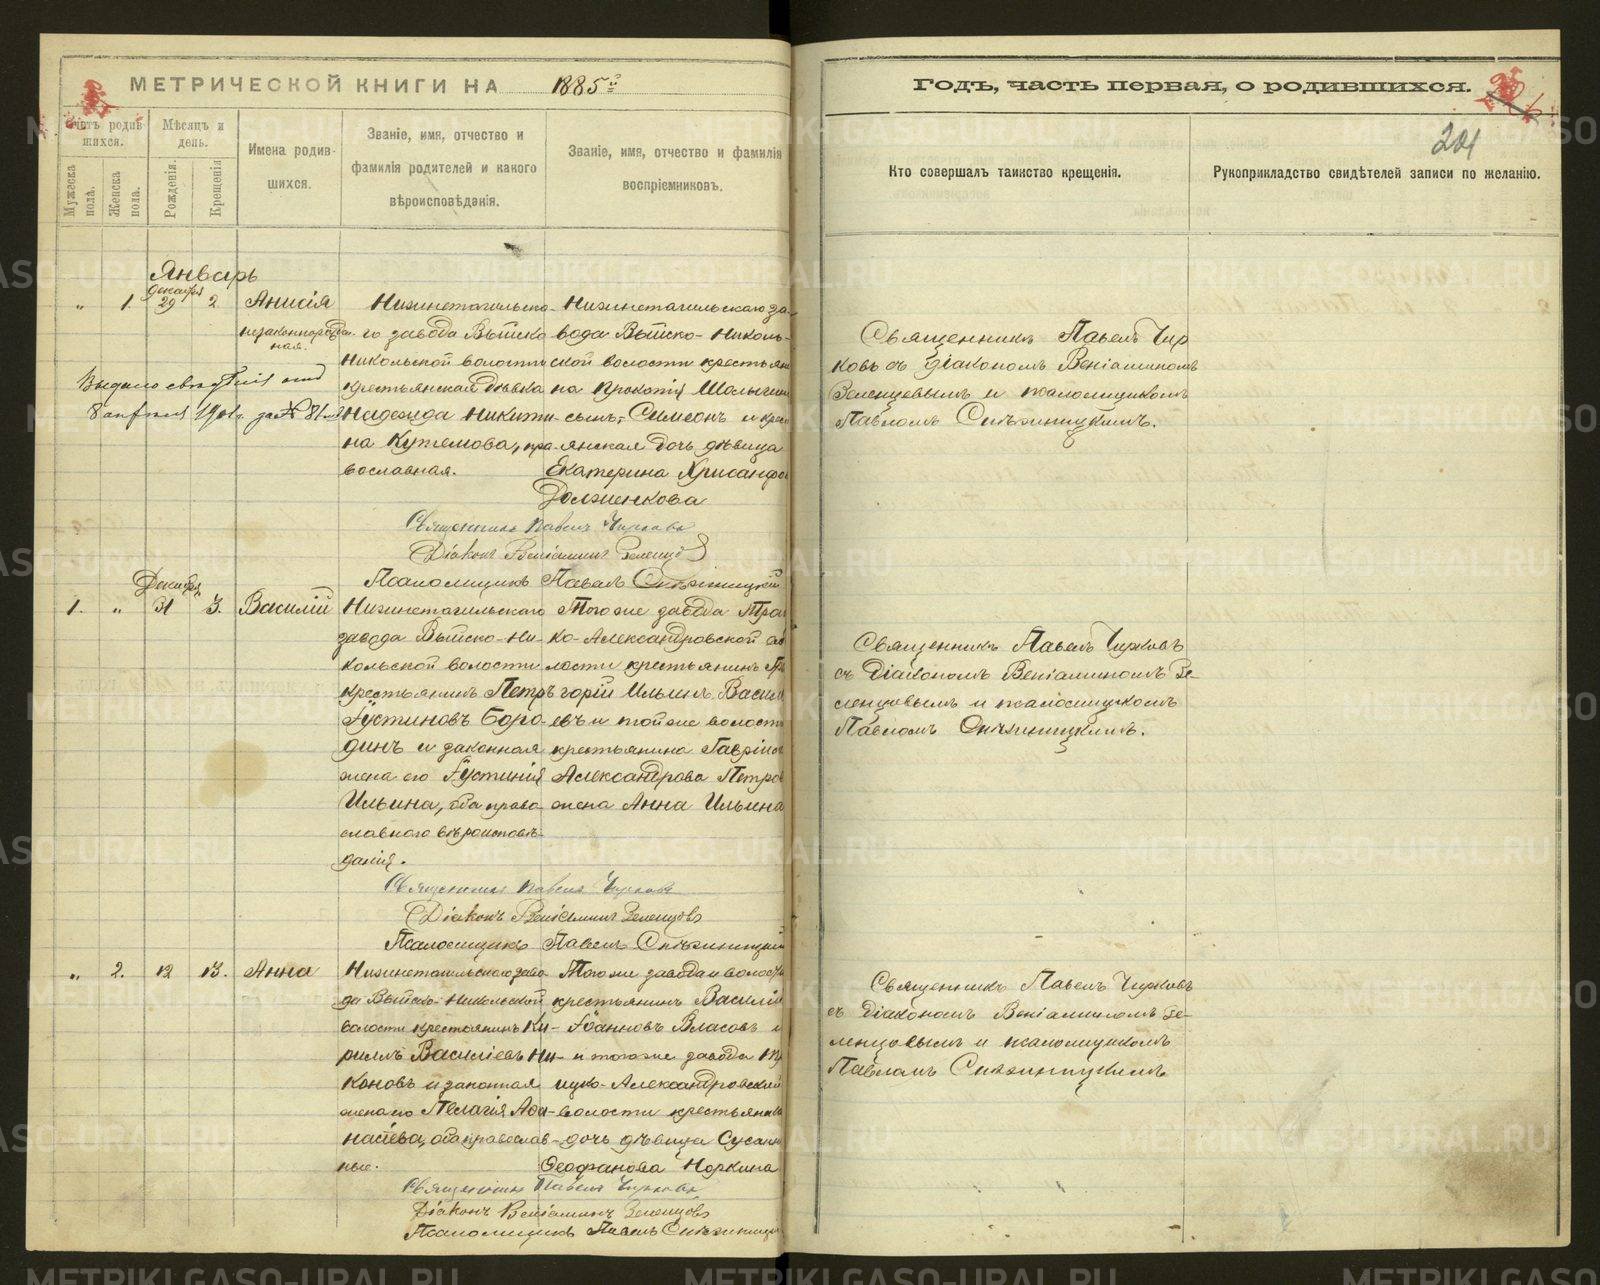 МЕТРИЧЕСКОЙ КНИГИ НА 1885й
Годъ, часть первая, о родившихся.
24
Счетъ родив-
шихся.
Мѣсяцъ и
день.
Мужеска
пола.
Женска
пола.
Рожденія.
Крещенія
Имена родив-
шихся.
Званіе, имя, отчество и
фамилія родителей и какого
вѣроисповѣданія.
Званіе, имя, отчество и фамилія
воспріемниковъ.
Кто совершалъ таинство крещенія.
Рукоприкладство свидѣтелей записи по желанію.
Январь
Декабря
" 1. 29 2 Анисія
незаконнорожден-
ная.
Выдано свидѣт
8 апреля 1901г. за № 81
Нижнетагильска-
го завода Выйско
Никольской волости
крестьянская дѣвка
Надежда Никити-
на Кутемова, пра-
вославная.
Нижнетагильскаго за-
вода Выйско-Николь-
ской волости крестьян
на Прокопія
сынъ, Симеонъ и крес
янская дочь дѣвица
Екатерина Хрисанфо
Долженкова
Священникъ Павелъ Чирковъ
Діаконъ Веніаминъ Зеленцов
Псаломщикъ Павелъ Снѣжницкій
Священникъ Павелъ Чир
ковъ съ Діакономъ Веніаминомъ
Зеленцевымъ и псаломщикомъ
Павломъ Снѣжницкимъ.
Декабря
1. " 31 3. Василій
Нижнетагильскаго
завода Выйско-Ни-
кольской волости
крестьянинъ Петръ
Іустиновъ Боро-
динъ и законная
жена его Іустинія
Ильина, оба право-
славнаго вѣроисповѣ-
данія.
Того же завода Тро
ко-Александровской во
лости крестьянинъ Гри
горій Ильинъ Васил
евъ и той же волости
крестьянина Гавріил
Александрова Петро
жена Анна Ильина
Священникъ Павелъ Чирковъ
Діаконъ Веніаминъ Зеленцовъ
Псаломщикъ Павелъ Снѣжницкій
Священникъ Павелъ Чирковъ
съ Діакономъ Веніаминомъ Зе-
ленцовымъ и псаломщикомъ
Павломъ Снѣжницкимъ.
" 2. 12 13. Анна
Нижнетагильскаго заво
да Выйско-Никольской
волости крестьянинъ Ки-
риллъ Василіевъ Ни-
коновъ и законная
жена его Пелагія Афа-
насіева, оба православ-
ные.
Того же завода и волости
крестьянинъ Василій
Іоанновъ Власовъ и
и того же завода Тро
ицко-Александровской
волости крестьянина
дочь дѣвица Сусанна
Ѳеофанова Норкина
Священникъ Павелъ Чирковъ
Діаконъ Веніаминъ Зеленцовъ
Псаломщикъ Павелъ Снѣжницкі
Священникъ Павелъ Чирковъ
съ Діакономъ Веніаминомъ Зе-
ленцовымъ и псаломщикомъ
Павломъ Снѣжницкимъ
METRIKI.GASO-URAL.RU